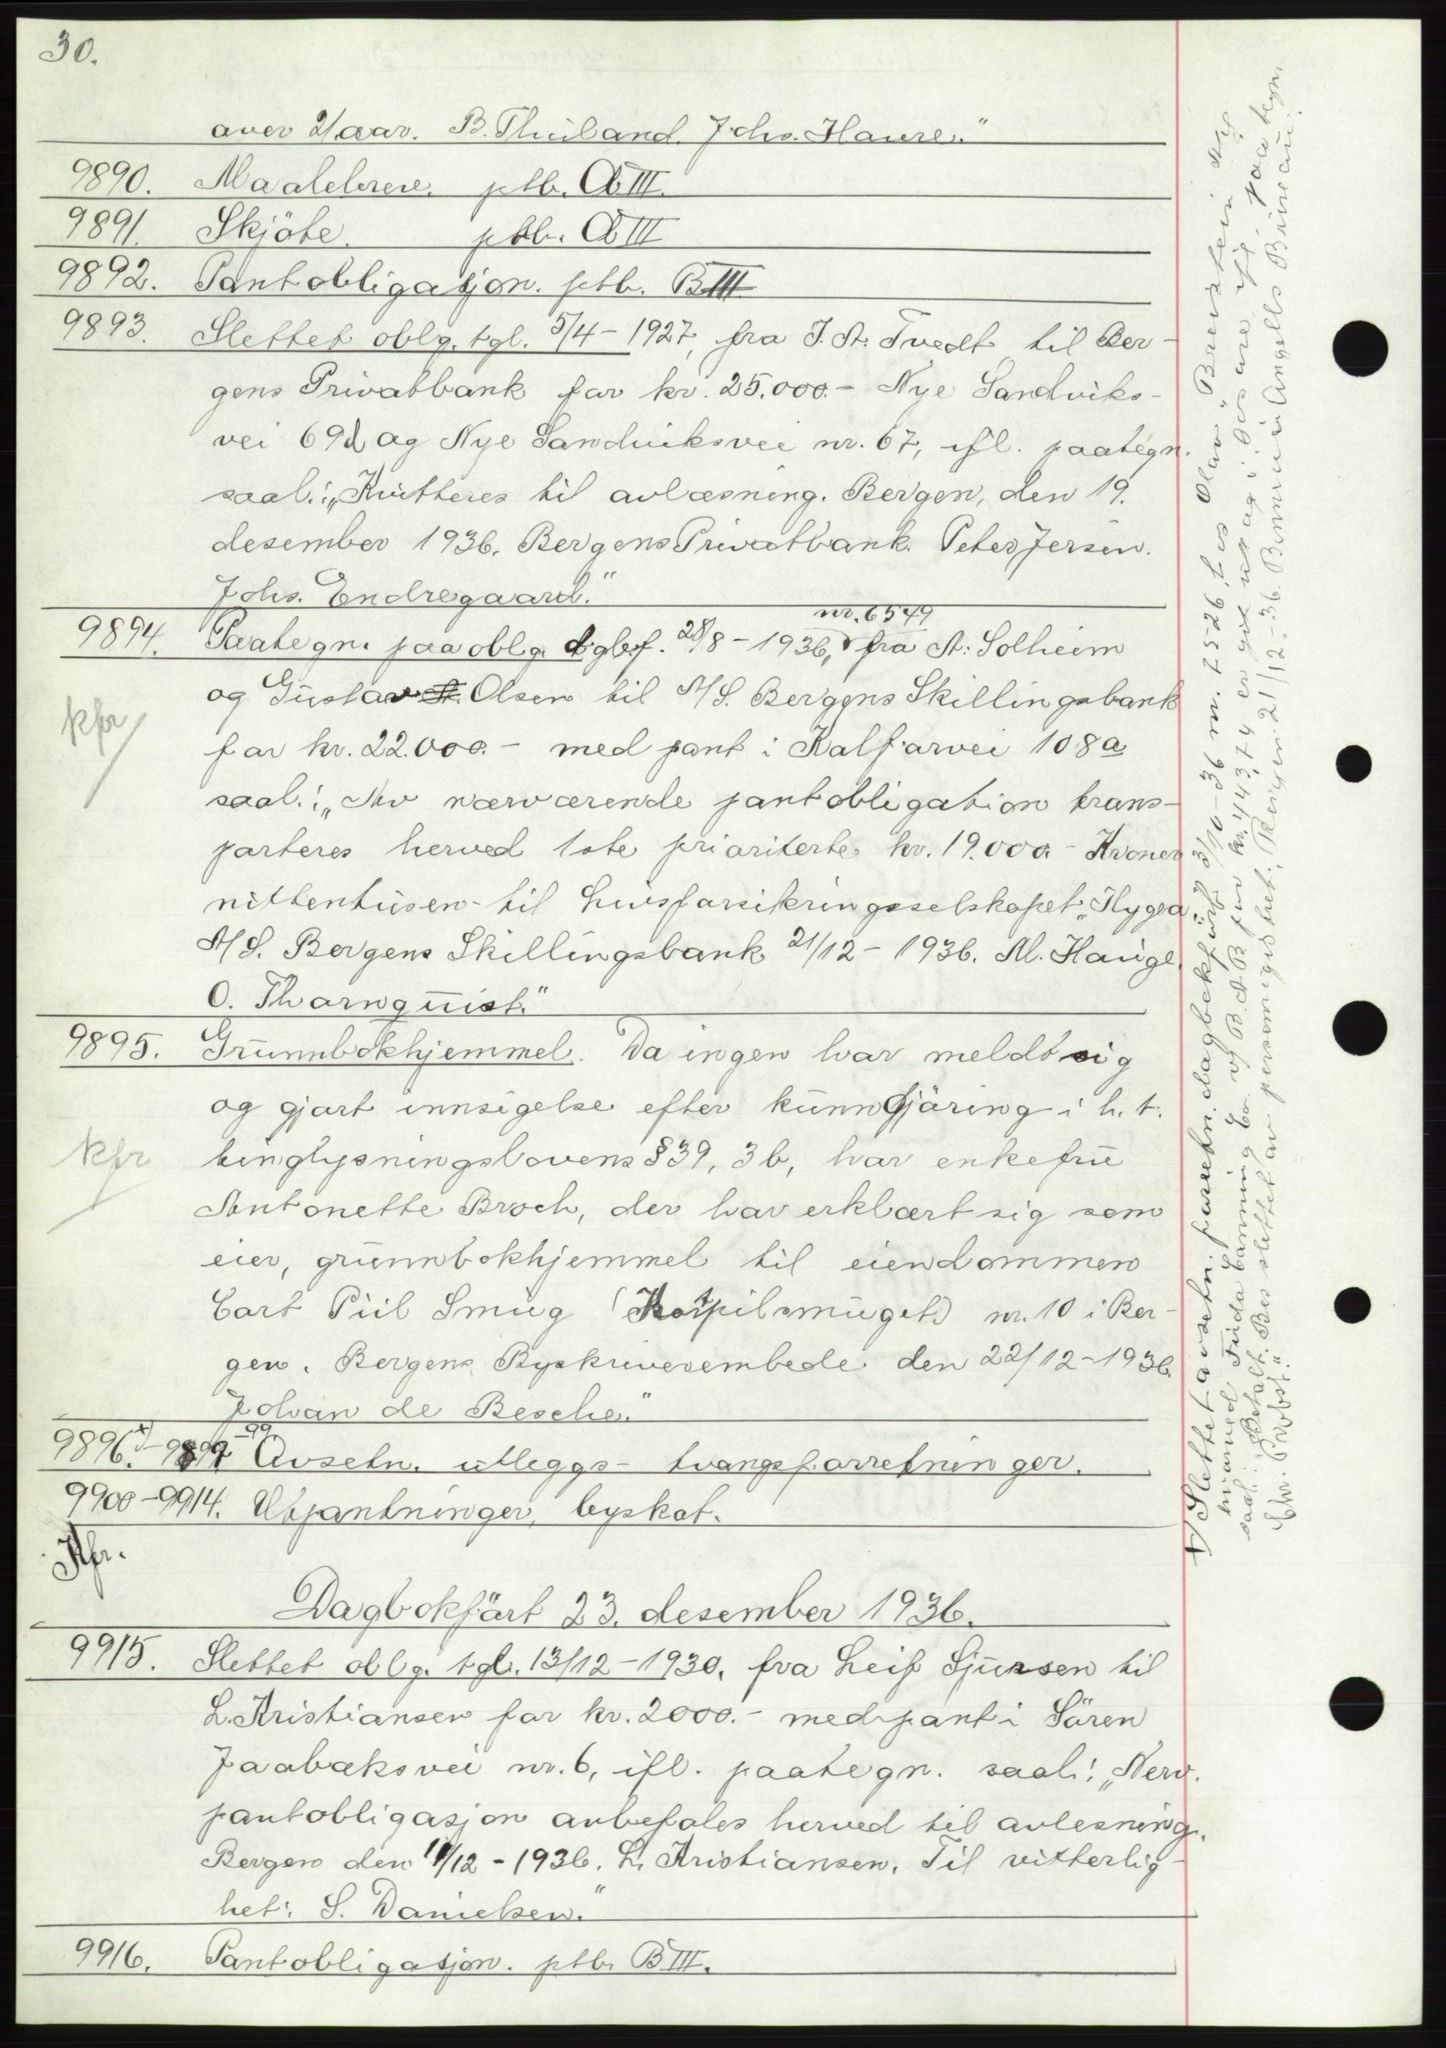 30.
over 21 aar. B. Thuland. Johs. Haure."
9890. Maalebreve. ptb. A III.
9891. Skjöte. ptb. A III
9892. Pantobligasjon. ptb. B III
9893. Slettet oblg. tgl. 5/4 - 1927, fra J. A. Tvedt til Ber-
gens Privatbank for kr. 25.000.- Nye Sandviks-
vei 69d og Nye Sandviksvei nr. 67, ifl. paategn.
saal.: „Kvitteres til avlæsning. Bergen, den 19.
desember 1936. Bergens Privatbank. Peter Jersin.
Johs. Endregaard."
nr. 6549
9894. Paategn. paa oblg. dgbf. 28/8 - 1936, fra A. Solheim
og Gustav Olsen til A/S. Bergens Skillingsbank
kfr
for kr. 22.000.- med pant i Kalfarvei 108a
saal.: „Av nærværende pantobligation trans-
porteres herved 1ste prioriterte kr. 19.000 - Kroner
nittentusen - til Livsforsikringsselskapet „Hygea".
A/S. Bergens Skillingsbank 21/12 - 1936. M. Hauge.
O. Thornquist."
9895. Grunnbokhjemmel. Da ingen har meldt sig
og gjort innsigelse efter kunngjöring i h. t.
kfr
tinglysningslovens § 39, 3 b, har enkefru
Antonette Broch, der har erklært sig som
eier, grunnbokhjemmel til eiendommen
Cort Piil Smug (Kortpilsmuget) nr. 10 i Ber-
gen. Bergens Byskriverembede den 22/12 - 1936.
Johan de Besche."
9896.+ - 99 Avsetn. utleggs- tvangsforretninger.
9900 - 9914. Utpantninger, byskat.
Kfr.
Dagbokfört 23. desember 1936.
9915. Slettet oblg. tgl. 13/12 - 1930, fra Leif Sjursen til
L. Kristiansen for kr. 2000.- med pant i Sören
Jaabæksvei nr. 6, ifl. paategn. saal.: „Nerv.
pantobligasjon anbefales herved til avlesning.
Bergen den 11/12 - 1936. L. Kristiansen. Til vitterlig-
het: S. Danielsen."
9916. Pantobligasjon. ptb. B III.
+/ Slettet avsetn. forretn. dagbokfört 3/10 - 36 nr. 7526 hos Olav Breistein
saal.: „Betalt. Bes slettet av personregistret. Bergen 21/12 - 36.